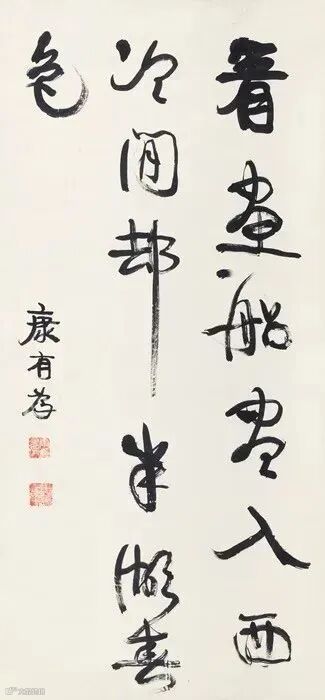 看畫船盡入西
泠閒却半湖春
色
康有為